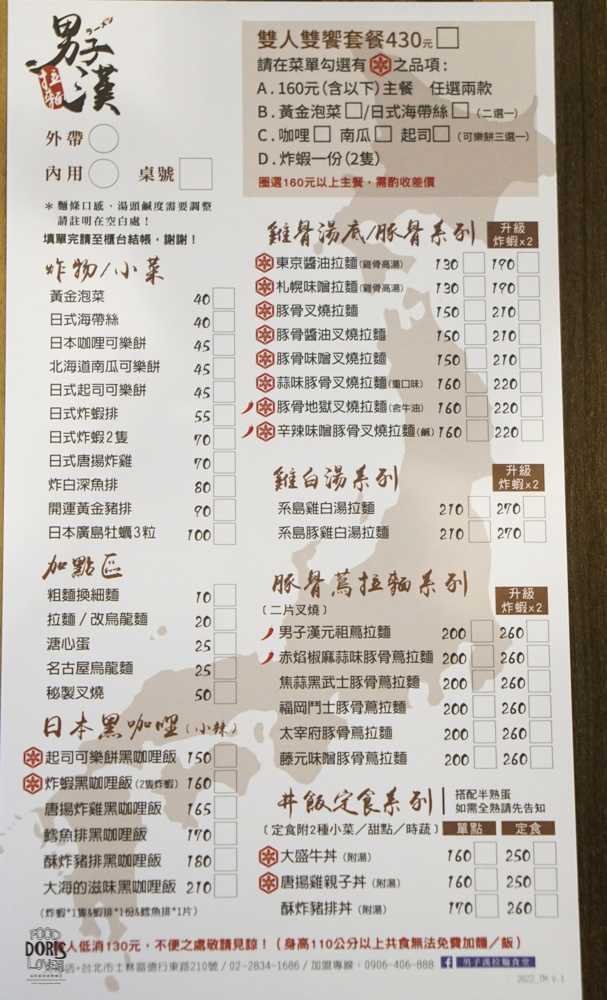 男子漢
拉麵
外帶
內用 桌號
＊麵條口感、湯頭鹹度需要調整
請註明在空白處！
填單完請至櫃台結帳，謝謝！
雙人雙饗套餐430元
請在菜單勾選有 之品項：
A.160元(含以下)主餐 任選兩款
B.黃金泡菜 /日式海帶絲 (二選一)
C.咖哩 南瓜 起司 (可樂餅三選一)
D.炸蝦一份(2隻)
圈選160元以上主餐，需酌收差價
炸物/小菜
黃金泡菜 40
日式海帶絲 40
日本咖哩可樂餅 45
北海道南瓜可樂餅 45
日式起司可樂餅 45
日式炸蝦排 55
日式炸蝦2隻 70
日式唐揚炸雞 70
炸白深魚排 80
開運黃金豬排 90
日本廣島牡蠣3粒 100
加點區
粗麵換細麵 10
拉麵/改烏龍麵 20
溏心蛋 25
名古屋烏龍麵 25
秘製叉燒 50
日本黑咖哩(小辣)
起司可樂餅黑咖哩飯 150
炸蝦黑咖哩飯(2隻炸蝦) 160
唐揚炸雞黑咖哩飯 165
鱈魚排黑咖哩飯 170
酥炸豬排黑咖哩飯 180
大海的滋味黑咖哩飯 210
(炸蝦*1隻&蝦排*1份&鱈魚排*1片)
雞骨湯底/豚骨系列 升級
炸蝦x2
東京醬油拉麵(雞骨高湯) 130 190
札幌味噌拉麵(雞骨高湯) 130 190
豚骨叉燒拉麵 150 210
豚骨醬油叉燒拉麵 150 210
豚骨味噌叉燒拉麵 150 210
蒜味豚骨叉燒拉麵(重口味) 160 220
豚骨地獄叉燒拉麵(含牛油) 160 220
辛辣味噌豚骨叉燒拉麵(鹹) 160 220
雞白湯系列 升級
炸蝦x2
系島雞白湯拉麵 210 270
系島豚雞白湯拉麵 210 270
豚骨蔦拉麵系列 升級
炸蝦x2
(二片叉燒)
男子漢元祖蔦拉麵 200 260
赤焰椒麻蒜味豚骨蔦拉麵 200 260
焦蒜黑武士豚骨蔦拉麵 200 260
福岡鬥士豚骨蔦拉麵 200 260
太宰府豚骨蔦拉麵 200 260
藤元味噌豚骨蔦拉麵 200 260
丼飯定食系列 搭配半熟蛋
如需全熟請先告知
(定食附2種小菜／甜點／時蔬) 單點 定食
大盛牛丼(附湯) 160 250
唐揚雞親子丼(附湯) 160 250
酥炸豬排丼(附湯) 170 260
人低消130元，不便之處敬請見諒！(身高110公分以上共食無法免費加麵／飯)
店・台北市士林區德行東路210號 / 02-2834-1686 / 加盟專線：0906-406-888 男子漢拉麵食堂
2022_TM V.1
FOOD
DORIS
LOVES